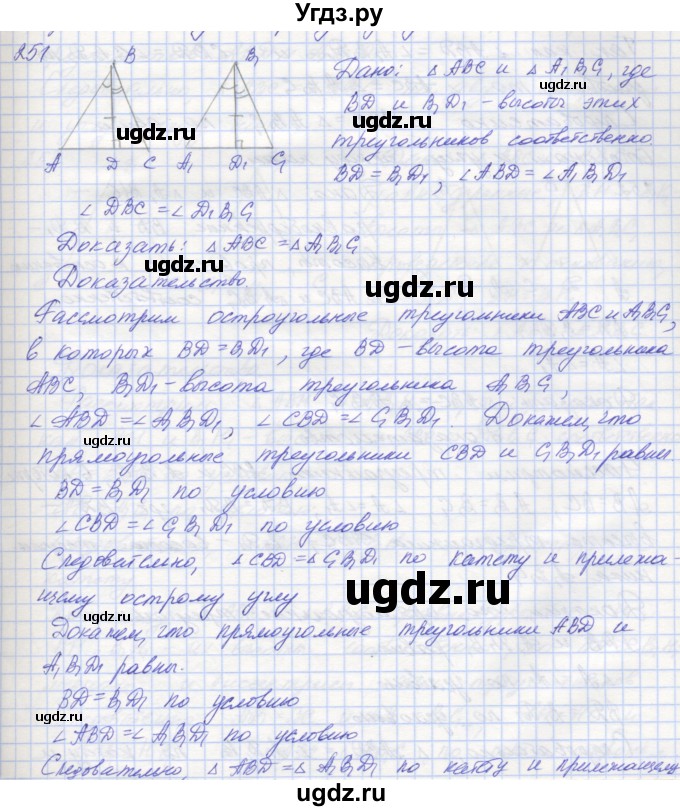 Угдз.ру
251
B B₁
A D C A₁ D₁ C₁
Дано: △ABC и △A₁B₁C₁, где
BD и B₁D₁ - высоты этих
треугольников соответственно.
BD = B₁D₁, ∠ABD = ∠A₁B₁D₁
∠DBC = ∠D₁B₁C₁
Доказать: △ABC = △A₁B₁C₁
Доказательство
Рассмотрим остроугольные треугольники ABC и A₁B₁C₁,
в которых BD = B₁D₁, где BD - высота треугольника
ABC, B₁D₁ - высота треугольника A₁B₁C₁,
∠ABD = ∠A₁B₁D₁, ∠CBD = ∠C₁B₁D₁. Докажем, что
прямоугольные треугольники CBD и C₁B₁D₁ равны.
BD = B₁D₁ по условию
∠CBD = ∠C₁B₁D₁ по условию
Следовательно, △CBD = △C₁B₁D₁ по катету и прилежа-
щему острому углу
Докажем, что прямоугольные треугольники ABD и
A₁B₁D₁ равны.
BD = B₁D₁ по условию
∠ABD = ∠A₁B₁D₁ по условию
Следовательно, △ABD = △A₁B₁D₁ по катету и прилежащему
ugdz.ru
ugdz.ru
ugdz.ru
ugdz.ru
ugdz.ru
ugdz.ru
ugdz.ru
ugdz.ru
ugdz.ru
ugdz.ru
ugdz.ru
ugdz.ru
ugdz.ru